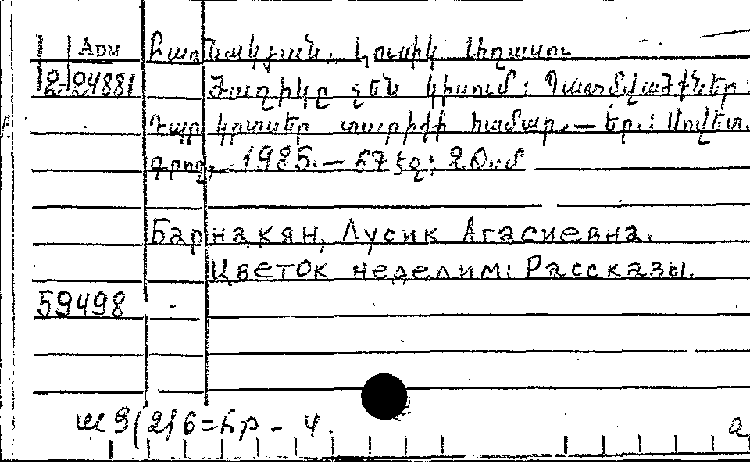 Арм Բառնակյան, Լուսիկ Աղասու
2 24881 Ծաղիկը չեն կիսում: Պատմվածքներ:
Դպր. կրտսեր տարիքի համար.— Եր.: Սովետ.
գրող, 1985.— 57 էջ: 20սմ
Барнакян, Лусик Агасиевна.
Цветок неделим: Рассказы.
59498